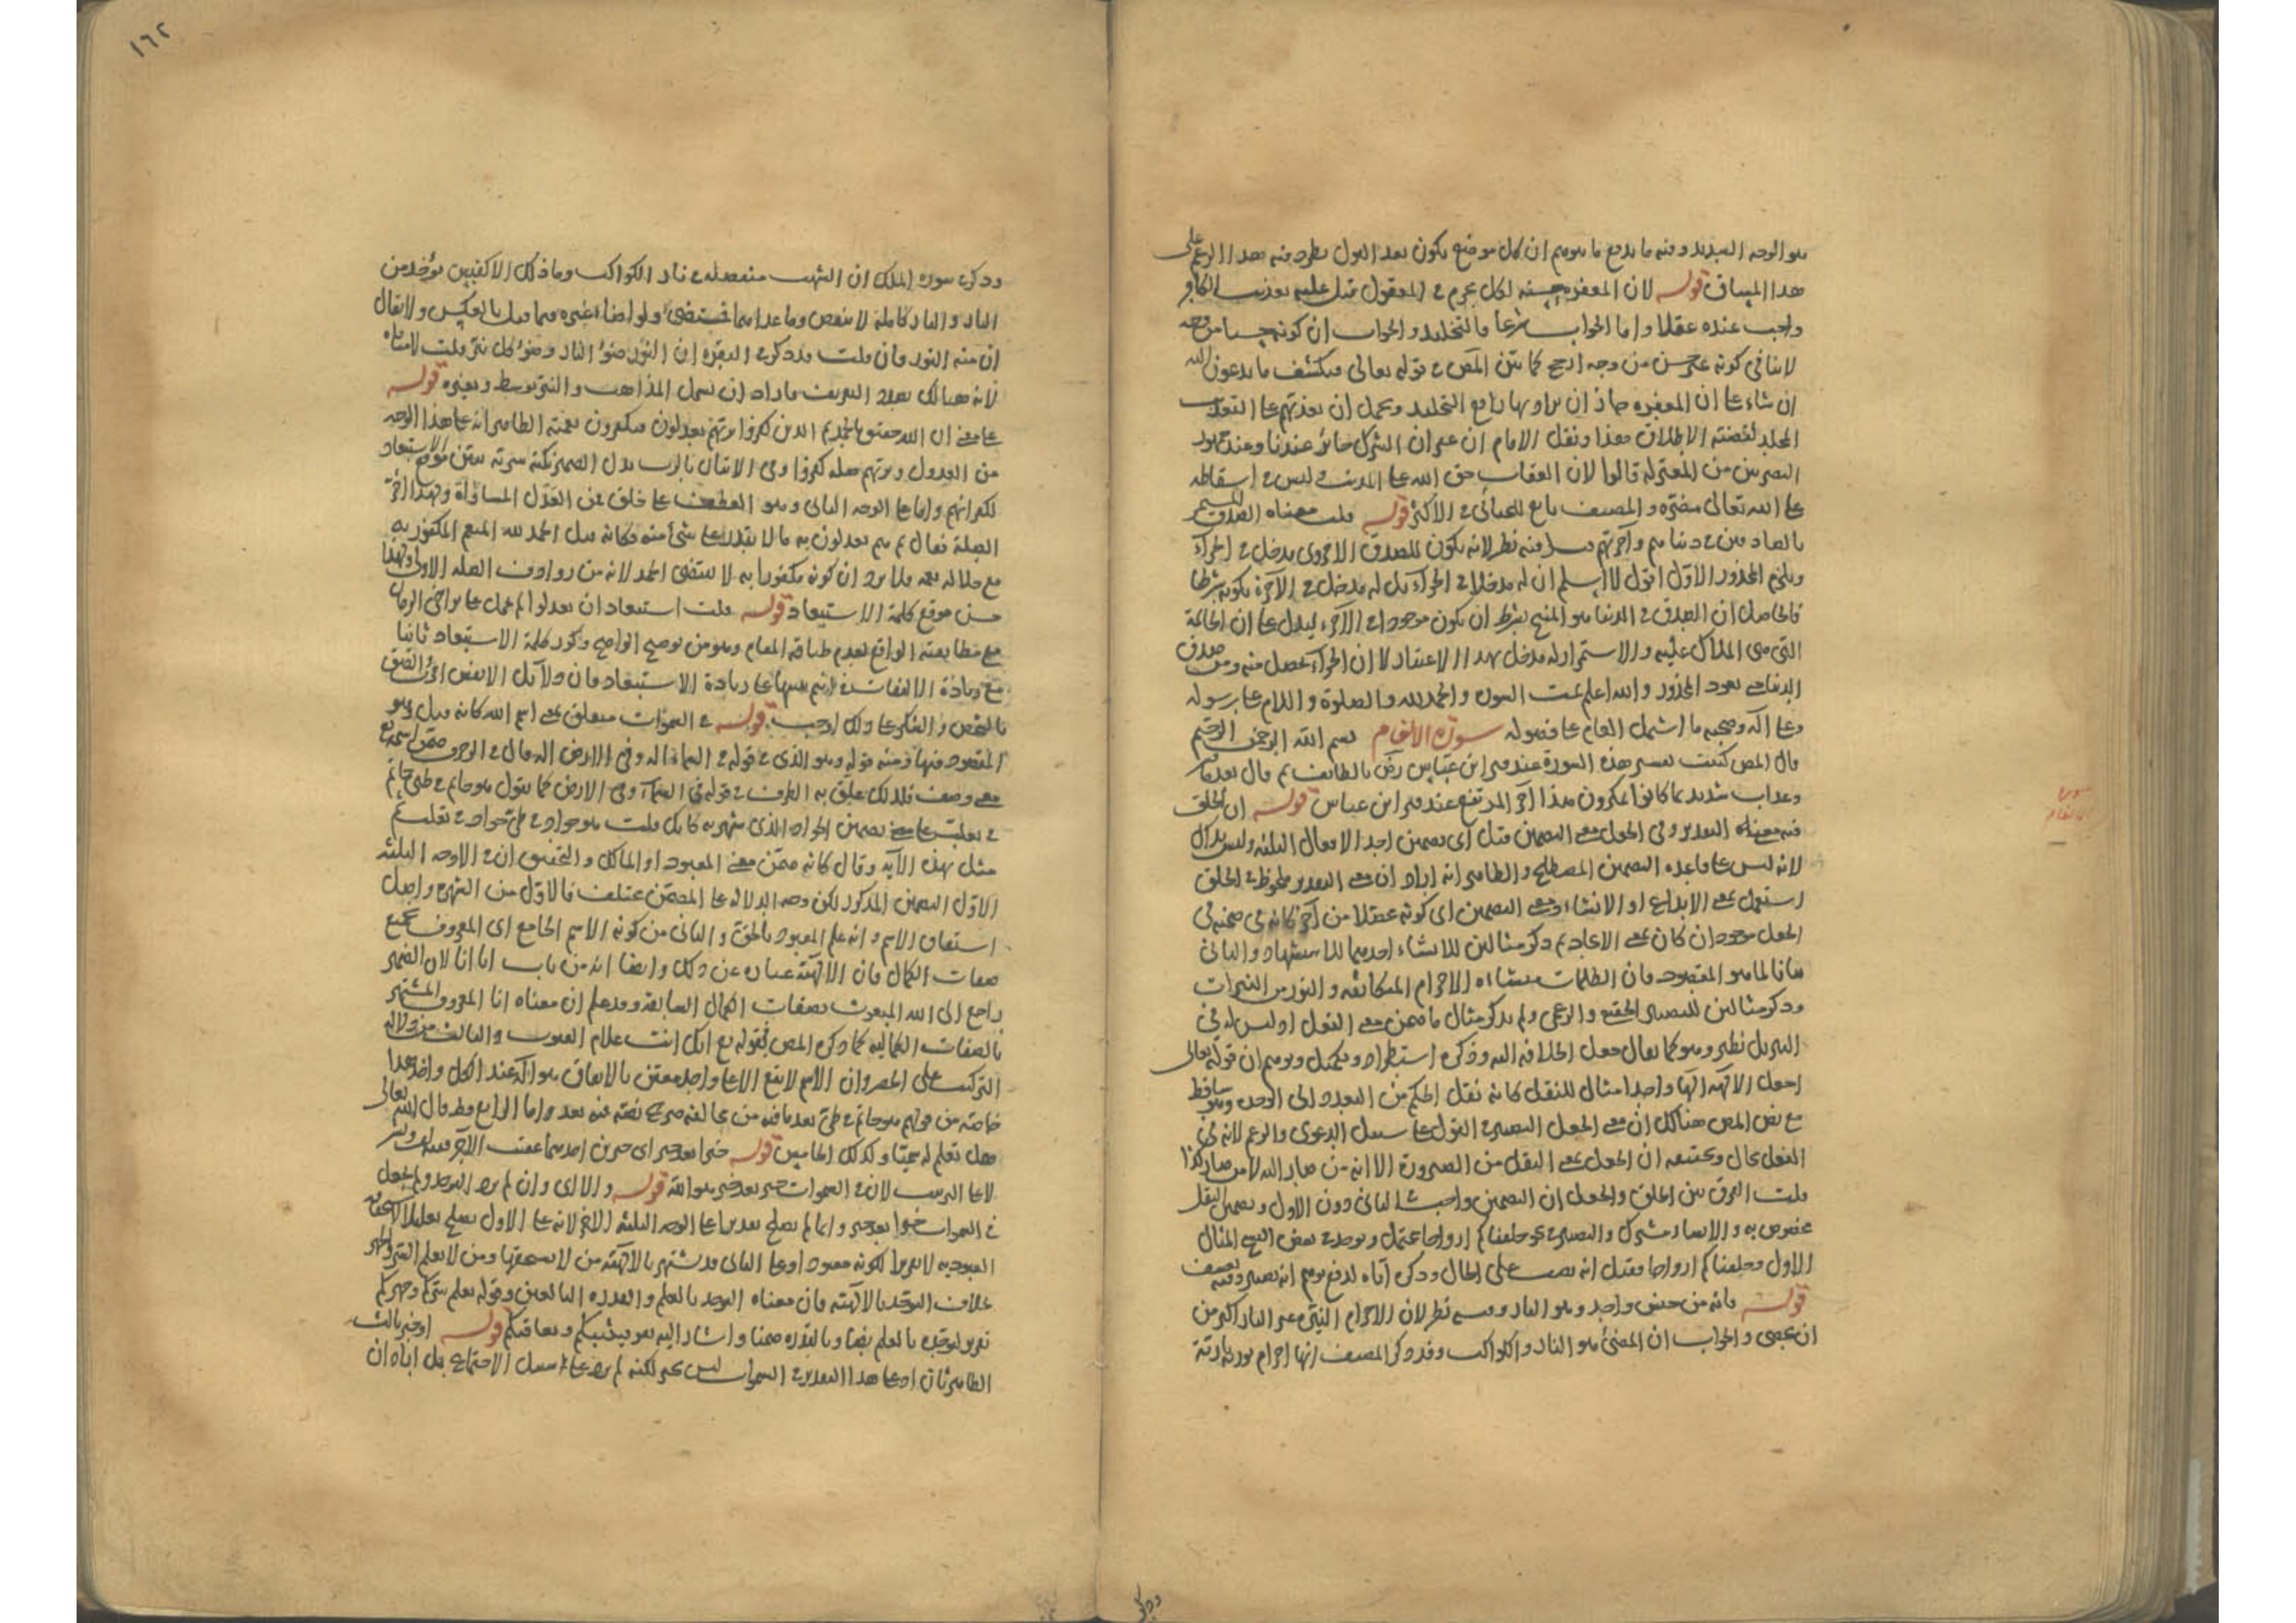 هو الوجه السديد وفيه ما يدفع ما يتوهم ان كل موضع يكون بعد القول يطرد فيه هذا الزعم على
هذا المساق قوله لان المغفرة حسنة لكل مجرم في المعقول قيل عليه تعذيب الكافر
واجب عنده عقلا واما الجواب شرعا فالتخليد والجواب ان كونه حسنا من وجه
لا ينافي كونه غير حسن من وجه ارجح كما بين المص في قوله تعالى فيكشف ما يدعون اليه
ان شاء على ان المغفرة جاز ان يراد بها رفع التخليد ويحمل ان تعذبهم على التعذيب
المخلد لقضية الاطلاق هذا ونقل الامام ان غفران الشرك جائز عندنا وعند جمهور
البصريين من المعتزلة قالوا لان العقاب حق الله على المذنب وليس في اسقاطه
على الله تعالى مضرة والمصنف تابع للجبائي في الاكثر قوله قلت معناه الصدق المستمر
بالصادقين في دنياهم وآخرتهم فيه نظر لانه يكون للصدق الاخروي مدخل في الجزاء
ويلزم المحذور الاول اقول لا اسلم ان له مدخلا في الجزاء بل له مدخل في الآخرة بكونه شرطا
فالحاصل ان الصدق في الدنيا هو المنجي بشرط ان يكون موجودا في الآخرة ليدل على ان الخاتمة
التي هي الملاك عليه والاستمرار له مدخل بهذا الاعتبار لا ان الجزاء يحصل منه ومن صدق
الدنيا حتى يعود المحذور والله اعلم تمت السورة والحمد لله والصلوة والسلام على رسوله
وعلى آله وصحبه ما اشتمل العام على فصوله سورة الانعام بسم الله الرحمن الرحيم
قال المص كتبت تفسير هذه السورة عند قبر ابن عباس رض بالطائف ثم قال بعد
وعذاب شديد بما كانوا يمكرون هذا آخر المرتفع عند قبر ابن عباس قوله ان الخلق
فيه معنى التقدير وفي الجعل معنى التضمين قيل اي تضمين احد الافعال الثلثة وليس بذاك
لانه ليس على قاعدة التضمين المصطلح والظاهر انه اراد ان معنى التقدير ملحوظ في الخلق
استعمل بمعنى الابداع او الانشاء ومعنى التضمين اي كونه محصلا من آخر كانه في ضمنه في
الجعل موجود ان كان بمعنى الايجاد ثم ذكر مثالين للانشاء احدهما للاستشهاد والثاني
بيانا لما هو المقصود فان الظلمات منشاه الاجرام المتكاثفة والنور من النيرات
وذكر مثالين للتصيير الحقيقي والزعمي ولم يذكر مثال ما ضمن معنى النقل اذ ليس له في
التنزيل نظير وهو كما يقال جعل الخلافة اليه وذكره استطرادا وتكميلا وتوهم ان قوله تعالى
اجعل الآلهة الها واحدا مثال للنقل كانه نقل الحكم من التعدد الى الوحدة وهو ساقط
مع نص المص هنالك ان معنى الجعل التصيير في القول على سبيل الدعوى والزعم لانه في
الفعل محال وتحقيقه ان الجعل بمعنى النقل من الصيرورة الا انه من صار اليه لا من صار كذا
قلت الفرق بين الخلق والجعل ان التضمين واجب في الثاني دون الاول وتضمين النقل
مخصوص به والانشاء مشترك والتصيير في نحو خلقناكم ازواجا محتمل ويوجد في بعض النسخ المثال
الاول وخلقناكم ازواجا فقيل انه نصب على الحال وذكره اياه لدفع توهم انه تصيير وفيه تعسف
قوله فانه من جنس واحد وهو النار وفيه نظر لان الاجرام النيرة غير النار اكثر من
ان تحصى والجواب ان المضئ هو النار والكواكب وقد ذكر المصنف انها اجرام نورية نارية
سورة الانعام
وذكر
١٦٢
وذكر في سورة الملك ان الشهب منفصلة من نار الكواكب وما ذلك الا كقبس يؤخذ من
النار والنار كاملة لا تنقص وما عداهما فمستضئ ولو اضاء غيره فيما قيل بالعكس ولا يقال
ان منه النور فان قلت قد ذكر في البقرة ان النور ضوء النار وضوء كل نير قلت لا منافاة
لانه هنالك بصدد التعريف فاراد ان يشمل المذاهب والنير بوسط وبغيره قوله
على معنى ان الله حقيق بالحمد ثم الذين كفروا بربهم يعدلون فيكفرون نعمته الظاهر انه على هذا الوجه
من العدول وبربهم صلة كفروا وفي الاتيان بالرب بدل الضمير نكتة سرية تبين موقع الاستبعاد
لكفرانهم واما على الوجه الثاني وهو العطف على خلق فمن العدل المساواة ولهذا اخر
الصلة فقال ثم هم يعدلون به ما لا يقدر على شئ منه فكانه قيل الحمد لله المنعم المكفور به
مع جلاله نعمه فلا يرد ان كونه مكفورا به لا يستدعي الحمد لانه من روادف الصلة الاولى ولهذا
حسن موقع كلمة الاستبعاد قوله قلت استبعاد ان يعدلوا لم يحمل على تراخي الزمان
مع مطابقته الواقع لعدم طباقه المقام وهو من توضيح الواضح وكرر كلمة الاستبعاد ثانيا
مع زيادة الالتفات في انتم تنبيها على زيادة الاستبعاد فان دلائل الانفس
بالشخص والفكر على ذلك اوجب قوله في السموات متعلق بمعنى اسم الله كانه قيل وهو
المعبود فيها ومنه قوله وهو الذي في قوله في السماء اله وفي الارض اله قال في الزخرف ضمن اسمه تع
معنى وصف فلذلك علق به الظرف في قوله في السماء وفي الارض كما تقول هو حاتم في طئ حاتم
في تغلب على معنى تضمين الجواد الذي شهر به كانك قلت هو جواد في طئ جواد في تغلب ثم
مثل بهذه الآية وقال كانه ضمن معنى المعبود او المالك والتحقيق ان في الاوجه الثلثة
الاول التضمين المذكور لكن وجه الدلالة على المضمن مختلف فالاول من الشهرة واصل
اشتقاق الاسم وانه علم للمعبود بالحق والثاني من كونه الاسم الجامع اي المعروف بجميع
صفات الكمال فان الالهية عبارة عن ذلك وايضا انه من باب انا انا لان الضمير
راجع الى الله المبعوث بصفات الكمال السابقة وقد علم ان معناه انا المعروف المشتهر
بالصفات الكمالية كما ذكره المص بقوله تع انك انت علام الغيوب والثالث من دلالة
التركيب على الحصر وان الاسم لا يقع الا على واحد معين بالاتفاق هو الله عند الكل واخذ هذا
خاصة من قولهم هو حاتم في طئ بعد ما فيه من مخالفة صريح نصه فيه بعد واما الرابع فظ قال الله تعالى
هل تعلم له سميا وكذلك الخامس قوله خبرا بعد خبر اي خبرين احدهما عقيب الآخر
لا على الترتيب لان في السموات خبر بعد خبر هو الله قوله والا ارى وان لم يرد التوحد ولم يجعل
في السموات خبرا بعد خبر وانما لم يصلح تقديرا على الوجه الثلثة الاخر لانه على الاول يصلح تعليلا لاستحقاق
العبودية لا تقريرا لكونه معبودا وعلى الثاني قد يشتهر بالالهية من لا يستحقها ومن لا يعلم السر والجهر
بخلاف التوحد بالالهية فان معناه التوحد بالعلم والقدرة البالغين وقوله يعلم سركم وجهركم
تقرير لتوحده بالعلم نصا وبالقدرة ضمنا واشار اليه بقوله يثيبكم ويعاقبكم قوله او خبر ثالث
الظاهر ثان اذ على هذا التقدير في السموات ليس بخبر لكنه لم يرد على سبيل الاجتماع بل اراد ان